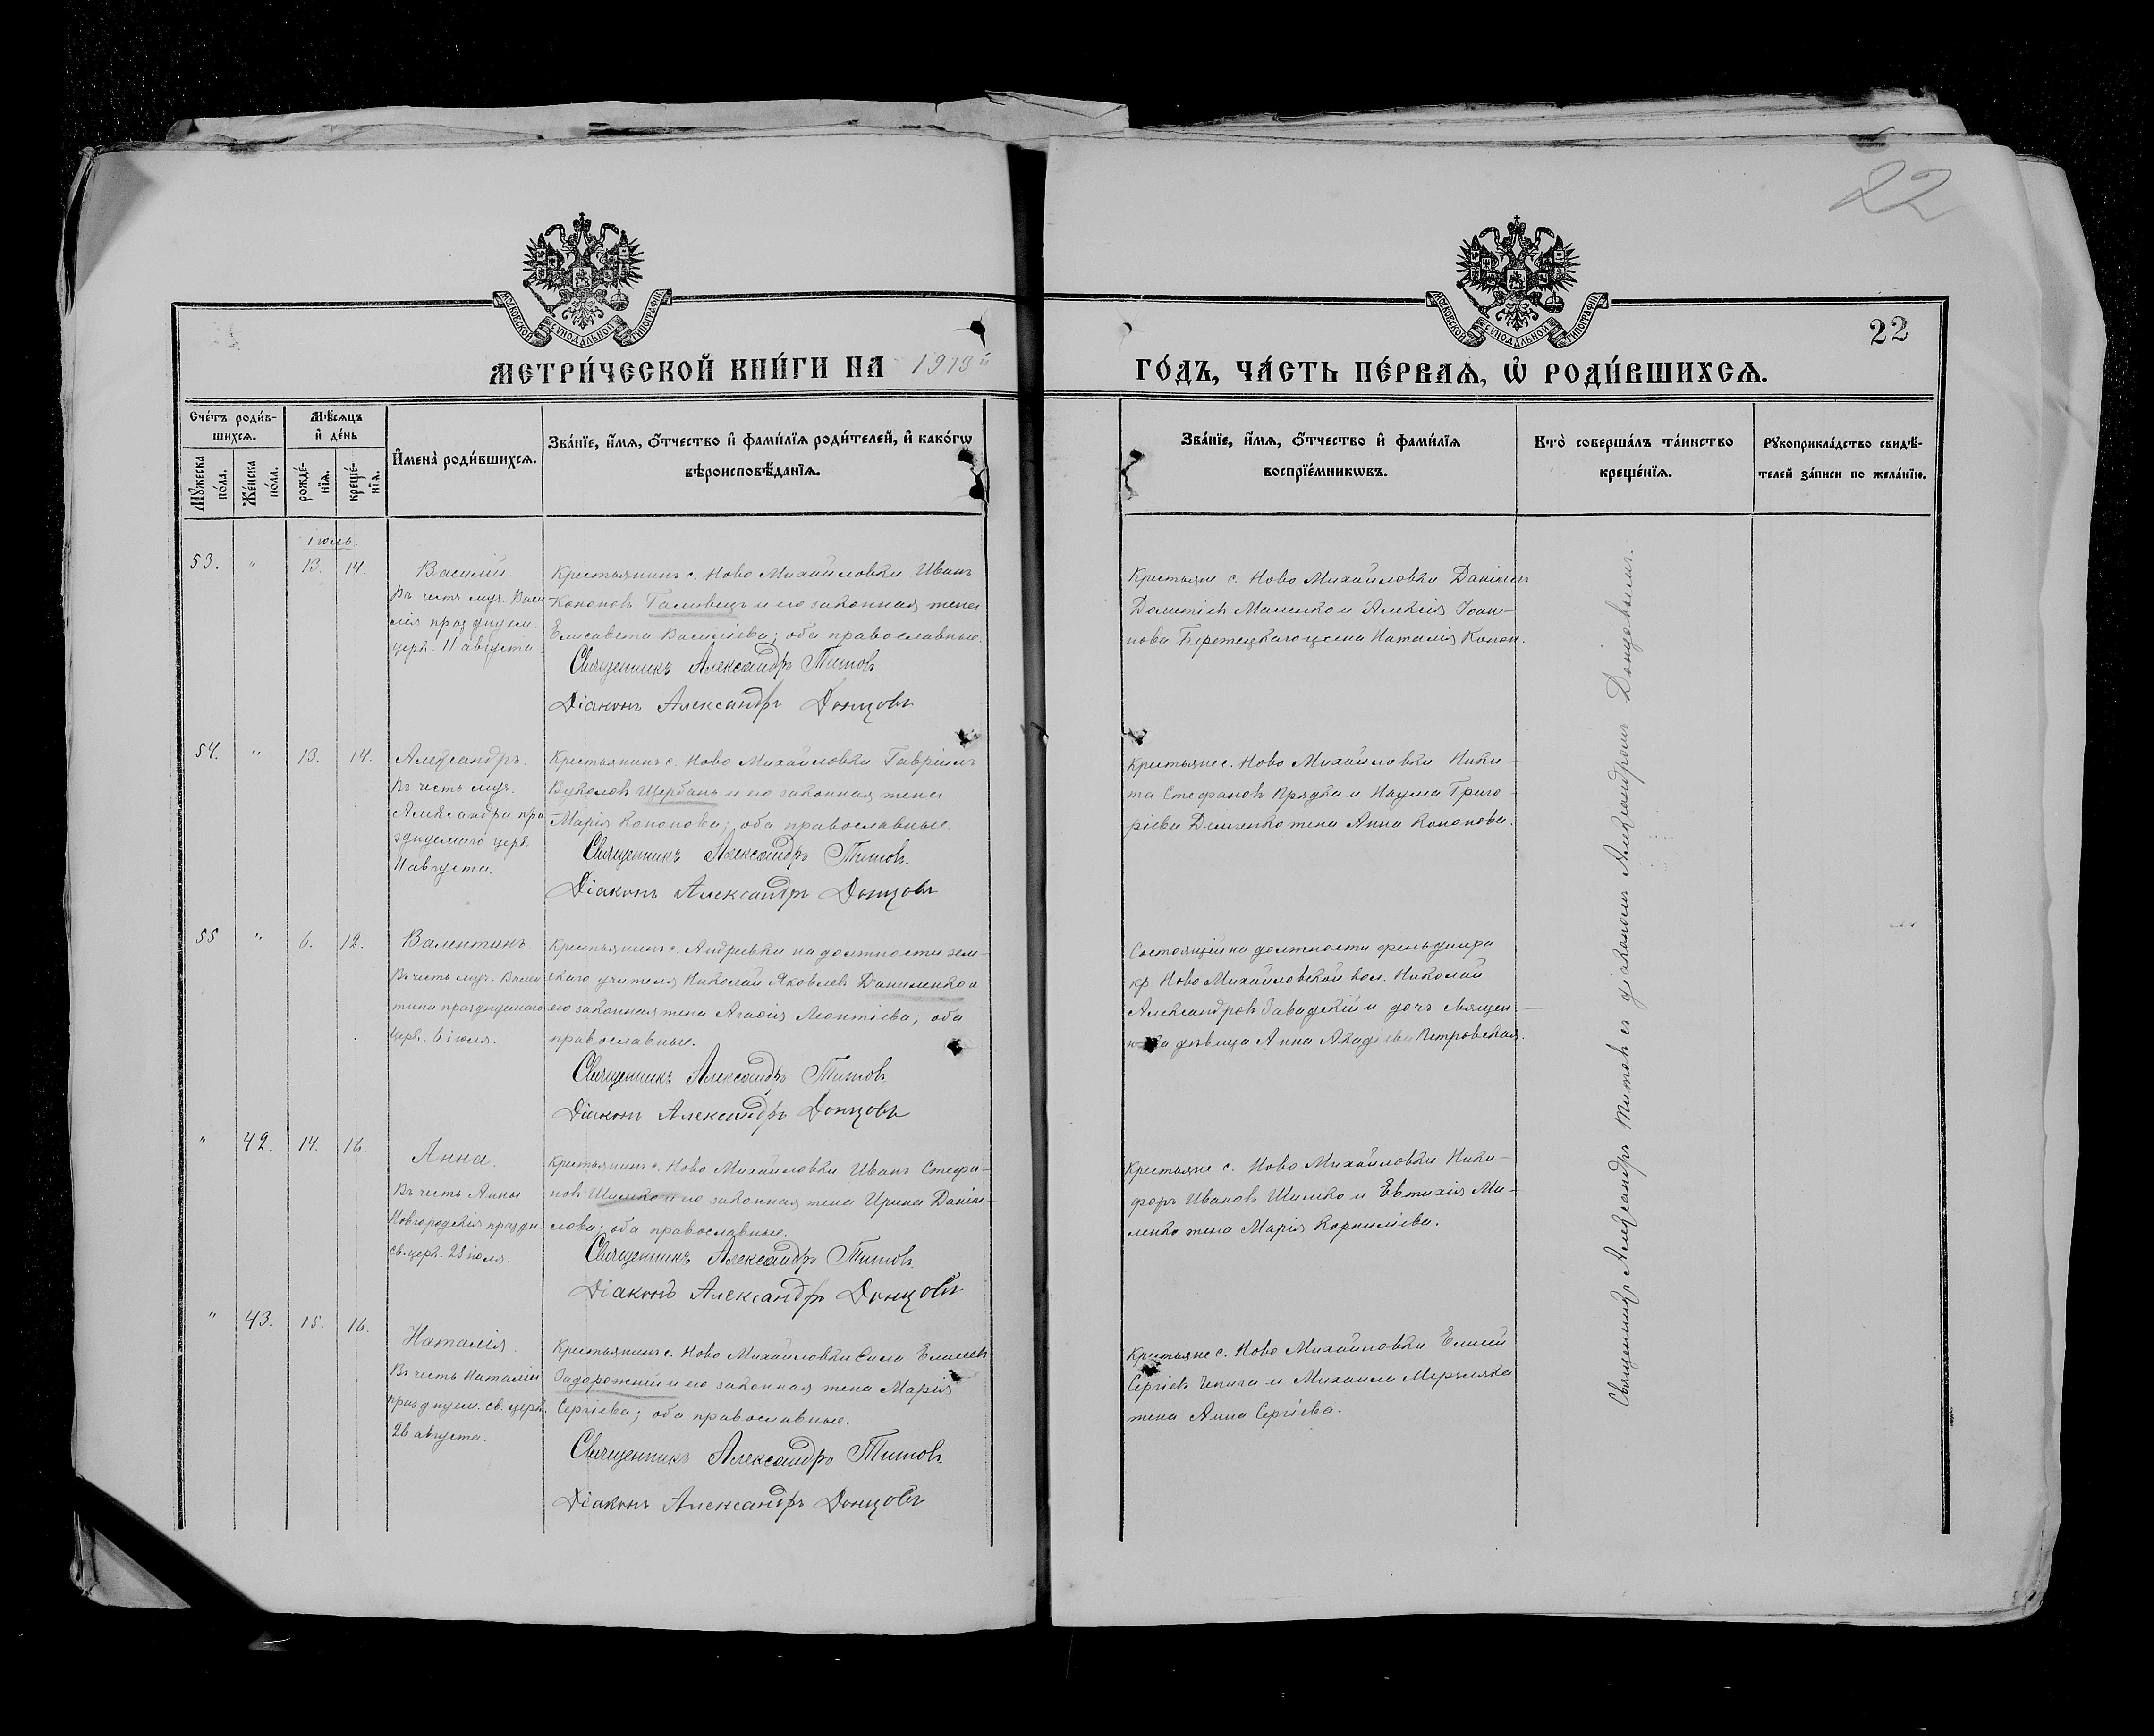 22
МОСКОВСКОЙ СѴНОДАЛЬНОЙ ТИПОГРАФІИ
МОСКОВСКОЙ СѴНОДАЛЬНОЙ ТИПОГРАФІИ
22
МЕТРИ́ЧЕСКОЙ КНИ́ГИ НА 1913й ГО́ДЪ, ЧА́СТЬ ПЕ́РВАѦ, Ѽ РОДИ́ВШИХСѦ.
Сче́тъ роди́в-
шихсѧ.
Мꙋ́жеска
по́ла.
Же́нска
по́ла.
Мѣ́сѧцъ
и҆ де́нь
рожде́-
нїѧ.
креще́-
нїѧ.
И҆мена̀ роди́вшихсѧ.
Зва́нїе, и҆́мѧ, ѻ҆́тчество и҆ фами́лїѧ роди́телей, и҆ како́гѡ
вѣроисповѣ́данїѧ.
Зва́нїе, и҆́мѧ, ѻ҆́тчество и҆ фами́лїѧ
воспрїе́мникѡвъ.
Кто̀ соверша́лъ та́инство
креще́нїѧ.
Рꙋкоприкла́дство свидѣ́-
телей за́писи по жела́нїю.
Іюль.
53. " 13. 14.
Василій.
Въ честь муч. Васи-
лія празднуем.
церк. 11 августа.
Крестьянинъ с. Ново Михайловки Иванъ
Кононовъ Галивецъ и его законная жена
Елисавета Василіева; оба православные.
Священникъ Александръ Титовъ
Діаконъ Александръ Донцовъ
Крестьяне с. Ново Михайловки Даніилъ
Дометіевъ Маленко и Алексія Іоан-
нова жена Наталія Конон.
54. " 13. 14.
Александръ.
Въ честь муч.
Александра пра
зднуемаго церк.
11 августа.
Крестьянинъ с. Ново Михайловки Гавріилъ
Вуколовъ Щербань и его законная жена
Марія Кононова; оба православные.
Священникъ Александръ Титовъ.
Діаконъ Александръ Донцовъ
Крестьяне с. Ново Михайловки Ники-
та Стефановъ Прядка и Наума Григо-
ріева Демченко жена Анна Кононова.
55 " 6. 12.
Валентинъ.
Въ честь муч. Вален
тина празднуемаго
церк. 6 іюля.
Крестьянинъ с. Андреевки на должности зем-
скаго учителя Николай Яковлевъ Даниленко и
его законная жена Агаѳія Леонтіева; оба
православные.
Священникъ Александръ Титовъ
Діаконъ Александръ Донцовъ
Состоящій на должности фельдшера
кр. Ново Михайловской вол. Николай
Александровъ Завадскій и дочь священ-
ника дѣвица Анна Петровская.
" 42. 14. 16.
Анна.
Въ честь Анны
Новгородскія праздн.
св. церк. 28 іюля.
Крестьянинъ с. Ново Михайловки Иванъ Стефа-
новъ Шимко и его законная жена Ирина Даніи-
лова; оба православные.
Священникъ Александръ Титовъ
Діаконъ Александръ Донцовъ
Крестьяне с. Ново Михайловки Ники-
форъ Ивановъ Шимко и Евтихія Ми-
ленко жена Марія Корниліева.
" 43. 15. 16.
Наталія.
Въ честь Наталіи
празднуем. св. церк.
26 августа.
Крестьянинъ с. Ново Михайловки Сила Елисеевъ
Задорожній и его законная жена Марія
Сергіева; оба православные.
Священникъ Александръ Титовъ
Діаконъ Александръ Донцовъ
Крестьяне с. Ново Михайловки Елисей
Сергіевъ Чепига и Михаила Мерзляка
жена Анна Сергіева.
Священникъ Александръ Титовъ съ діакономъ Александромъ Донцовымъ.